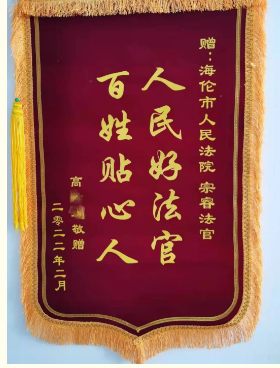 赠：海伦市人民法院 宗睿法官
人民好法官
百姓贴心人
高 敬赠
二零二二年二月